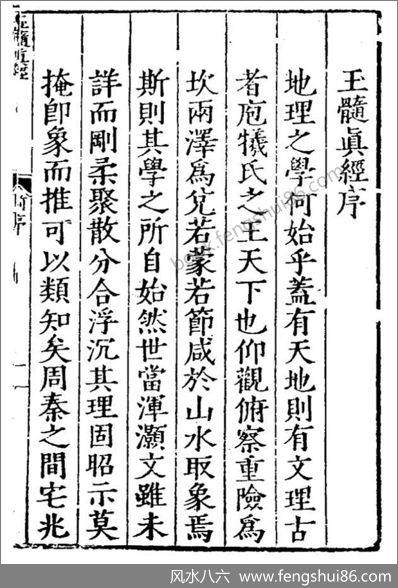 玉髓真經序
地理之學何始乎蓋有天地則有文理古
者庖犧氏之王天下也仰觀俯察重險為
坎兩澤為兌若蒙若節咸於山水取象焉
斯則其學之所自始然世當渾灝文雖未
詳而剛柔聚散分合浮沉其理固昭示莫
掩卽象而推可以類知矣周秦之間宅兆
玉髓真經
序
一
book.fengshui86.com
风水八六 - www.fengshui86.com